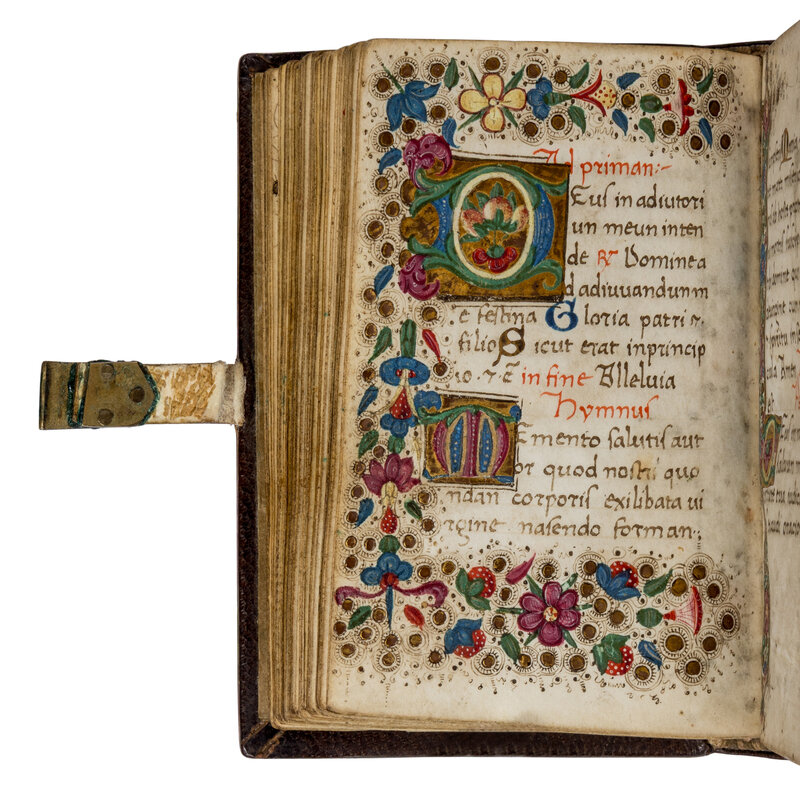 Ad priman:-
Deus in adiutori
un meun inten
de ℟ Dominea
d adiuuandunm
e festina Gloria patri ⁊.
filio Sicut erat inprincip
io. ⁊. c̄ in fine Alleluia
Hymnus
Memento salutis aut
or quod nostri quo
ndan corporis exilibata ui
rgine nasendo forman.